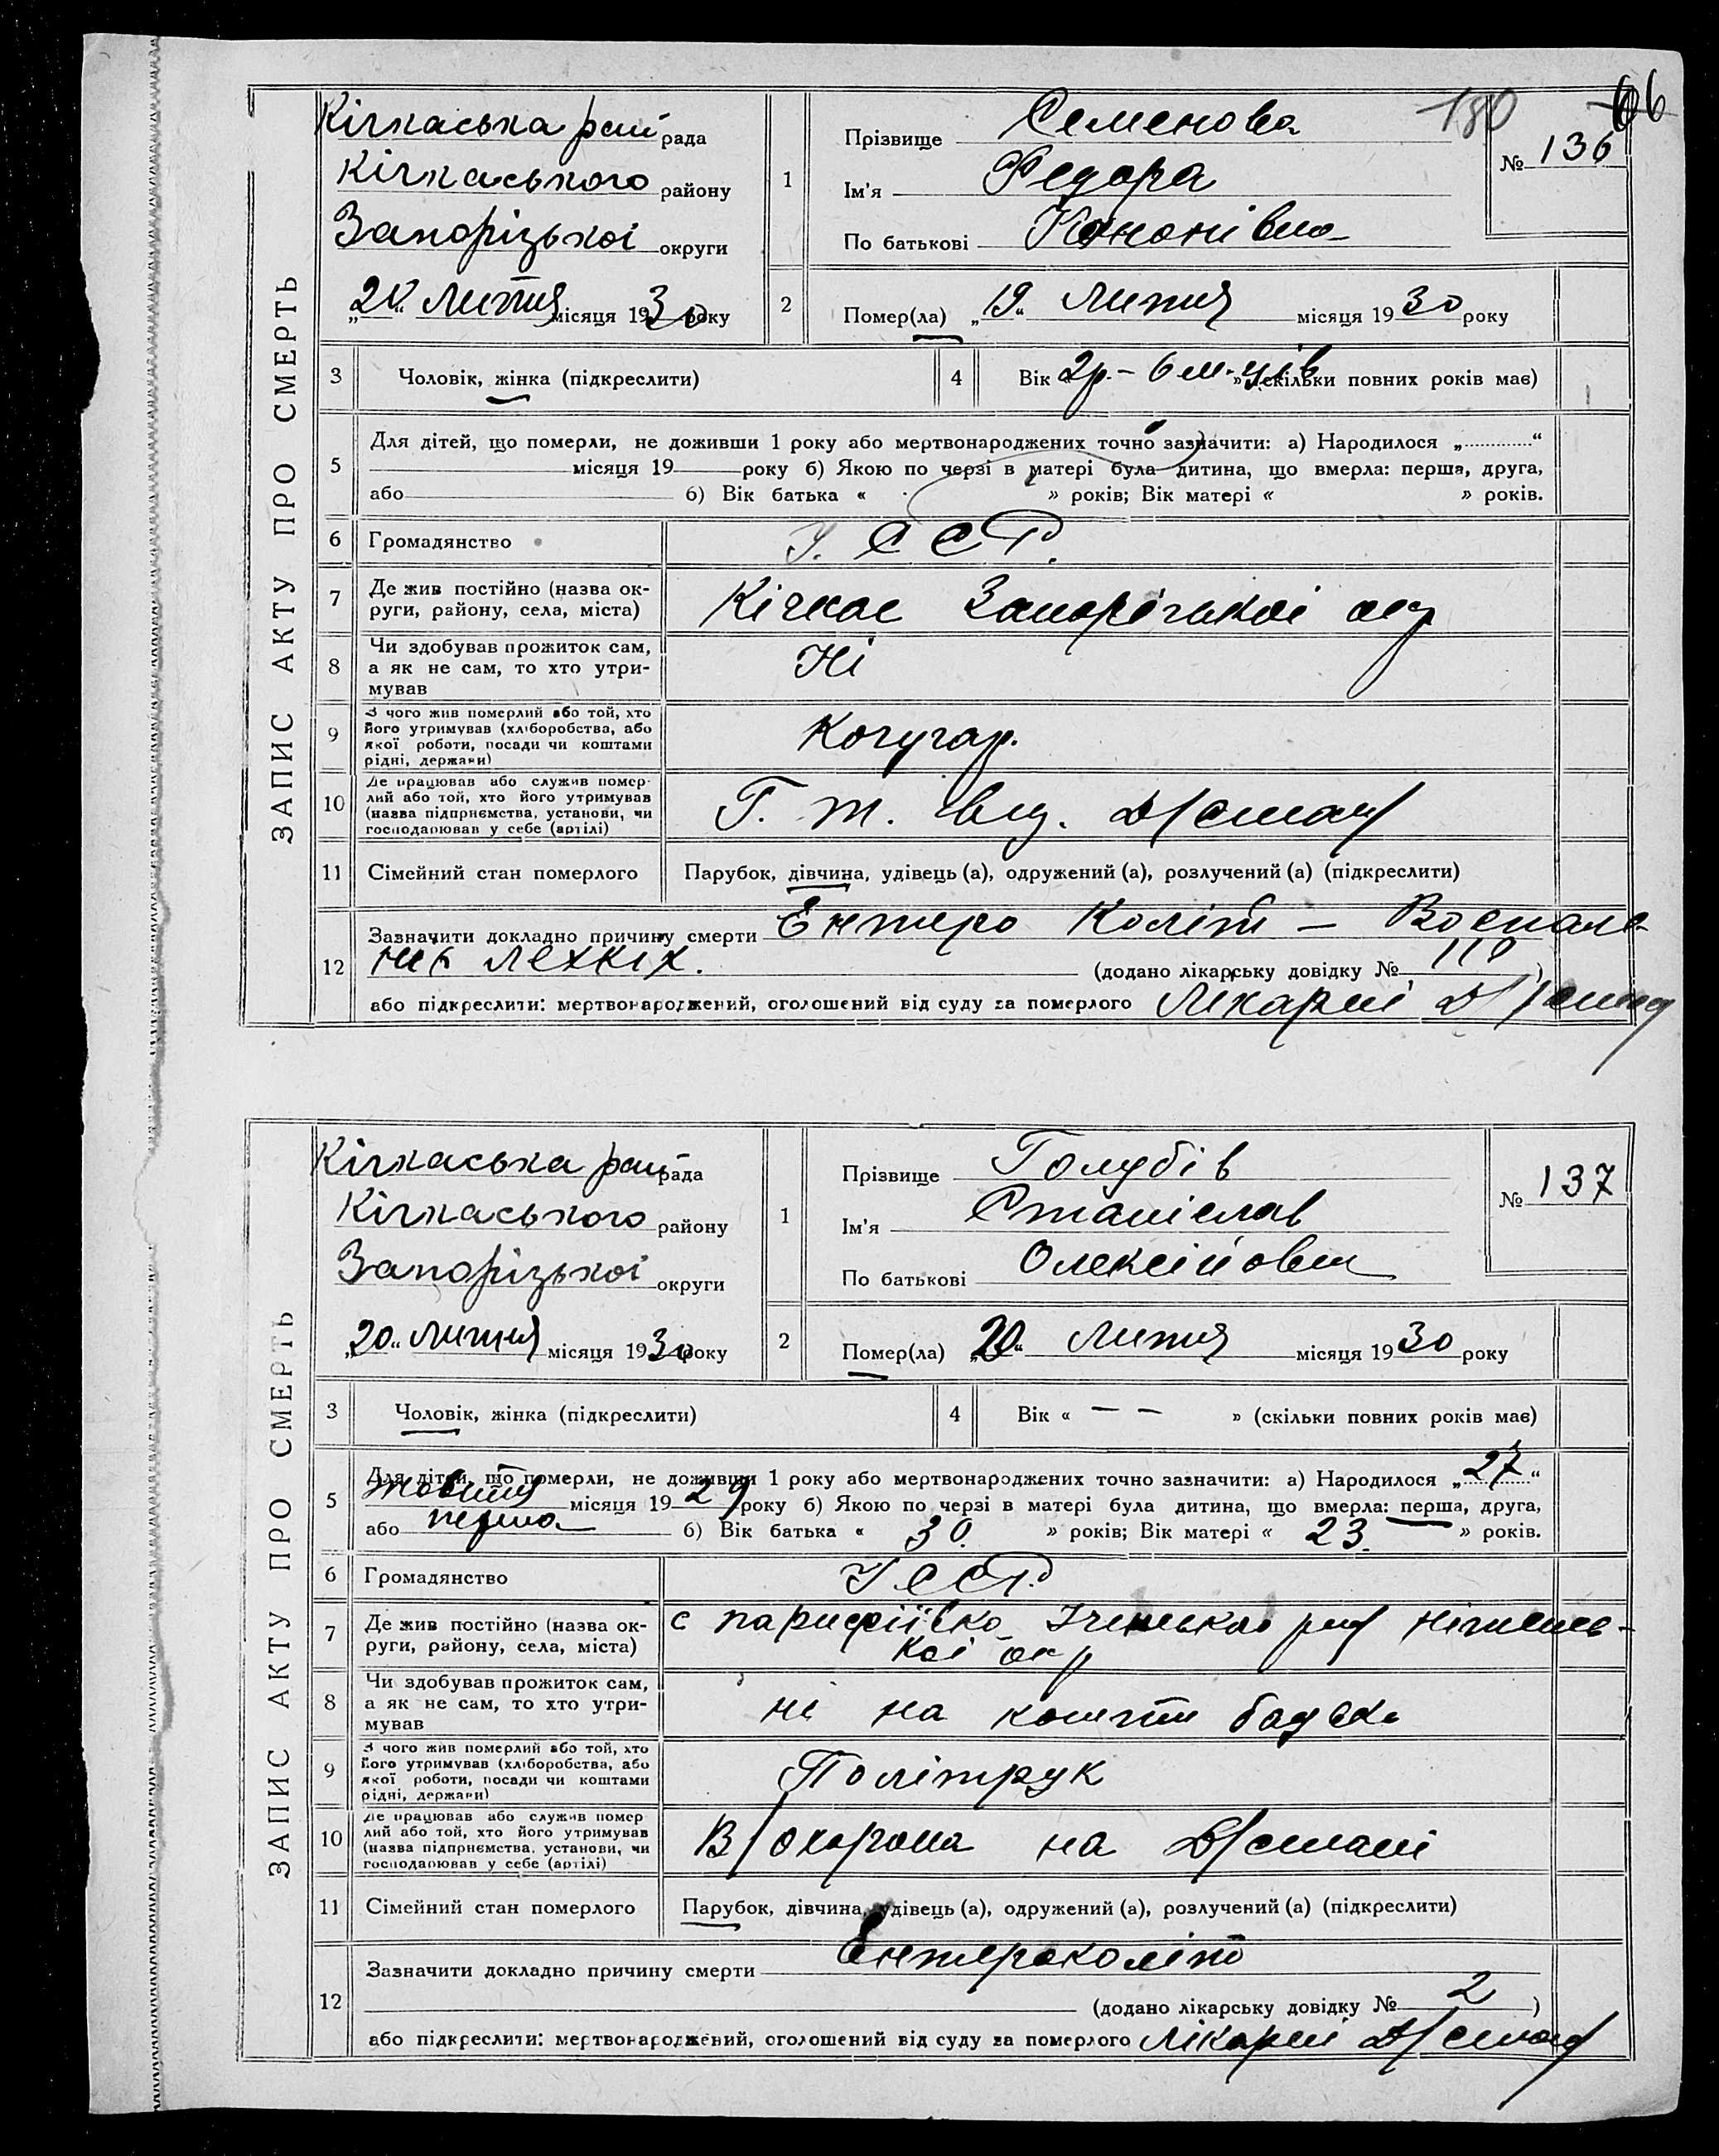 66
180
ЗАПИС АКТУ ПРО СМЕРТЬ
Кічкаська рай рада
Кічкаського району
Запорізької округи
„20“ Липня місяця 1930 року
1
Прізвище Семенова
Ім'я Федора
По батькові Кононівна
№ 136
2
Помер(ла) „19“ Липня місяця 1930 року
3 Чоловік, жінка (підкреслити)
4 Вік «2р.– 6 м-ців» (скільки повних років має)
5 Для дітей, що померли, не доживши 1 року або мертвонароджених точно зазначити: а) Народилося „ “
місяця 19 року б) Якою по черзі в матері була дитина, що вмерла: перша, друга,
або б) Вік батька « » років; Вік матері « » років.
6 Громадянство У. С С Р.
7 Де жив постійно (назва ок-
руги, району, села, міста) Кічкас Запорізької окр
8 Чи здобував прожиток сам,
а як не сам, то хто утри-
мував Ні
9 З чого жив померлий або той, хто
його утримував (хліборобства, або
якої роботи, посади чи коштами
рідні, держави) Кочугар.
10 Де працював або служив помер-
лий або той, хто його утримував
(назва підприємства, установи, чи
господарював у себе (артілі) Г. т. від. Д/стану
11 Сімейний стан померлого Парубок, дівчина, удівець (а), одружений (а), розлучений (а) (підкреслити)
12 Зазначити докладно причину смерти Ентеро Коліт – Воспале-
ння легких. (додано лікарську довідку № 110)
або підкреслити: мертвонароджений, оголошений від суду за померлого Лікарні Д/стану
ЗАПИС АКТУ ПРО СМЕРТЬ
Кічкаська рай рада
Кічкаського району
Запорізької округи
„20“ Липня місяця 1930 року
1
Прізвище Голубів
Ім'я Станіслав
По батькові Олексійович
№ 137
2
Помер(ла) „20“ Липня місяця 1930 року
3 Чоловік, жінка (підкреслити)
4 Вік « – – » (скільки повних років має)
5 Для дітей, що померли, не доживши 1 року або мертвонароджених точно зазначити: а) Народилося „27“
Жовтня місяця 1929 року б) Якою по черзі в матері була дитина, що вмерла: перша, друга,
або перша б) Вік батька « 30. » років; Вік матері « 23. » років.
6 Громадянство УССР.
7 Де жив постійно (назва ок-
руги, району, села, міста) с Парафіївка Ічнянсько рай Ніженсь-
кої окр
8 Чи здобував прожиток сам,
а як не сам, то хто утри-
мував ні на кошти батька
9 З чого жив померлий або той, хто
його утримував (хліборобства, або
якої роботи, посади чи коштами
рідні, держави) Політрук
10 Де працював або служив помер
лий або той, хто його утримував
(назва підприємства, установи, чи
господарював у себе (артілі) В/охорона на Д/стані
11 Сімейний стан померлого Парубок, дівчина, удівець (а), одружений (а), розлучений (а) (підкреслити)
12 Зазначити докладно причину смерти Ентероколіт
(додано лікарську довідку № 2)
або підкреслити: мертвонароджений, оголошений від суду за померлого Лікарні Д/стану